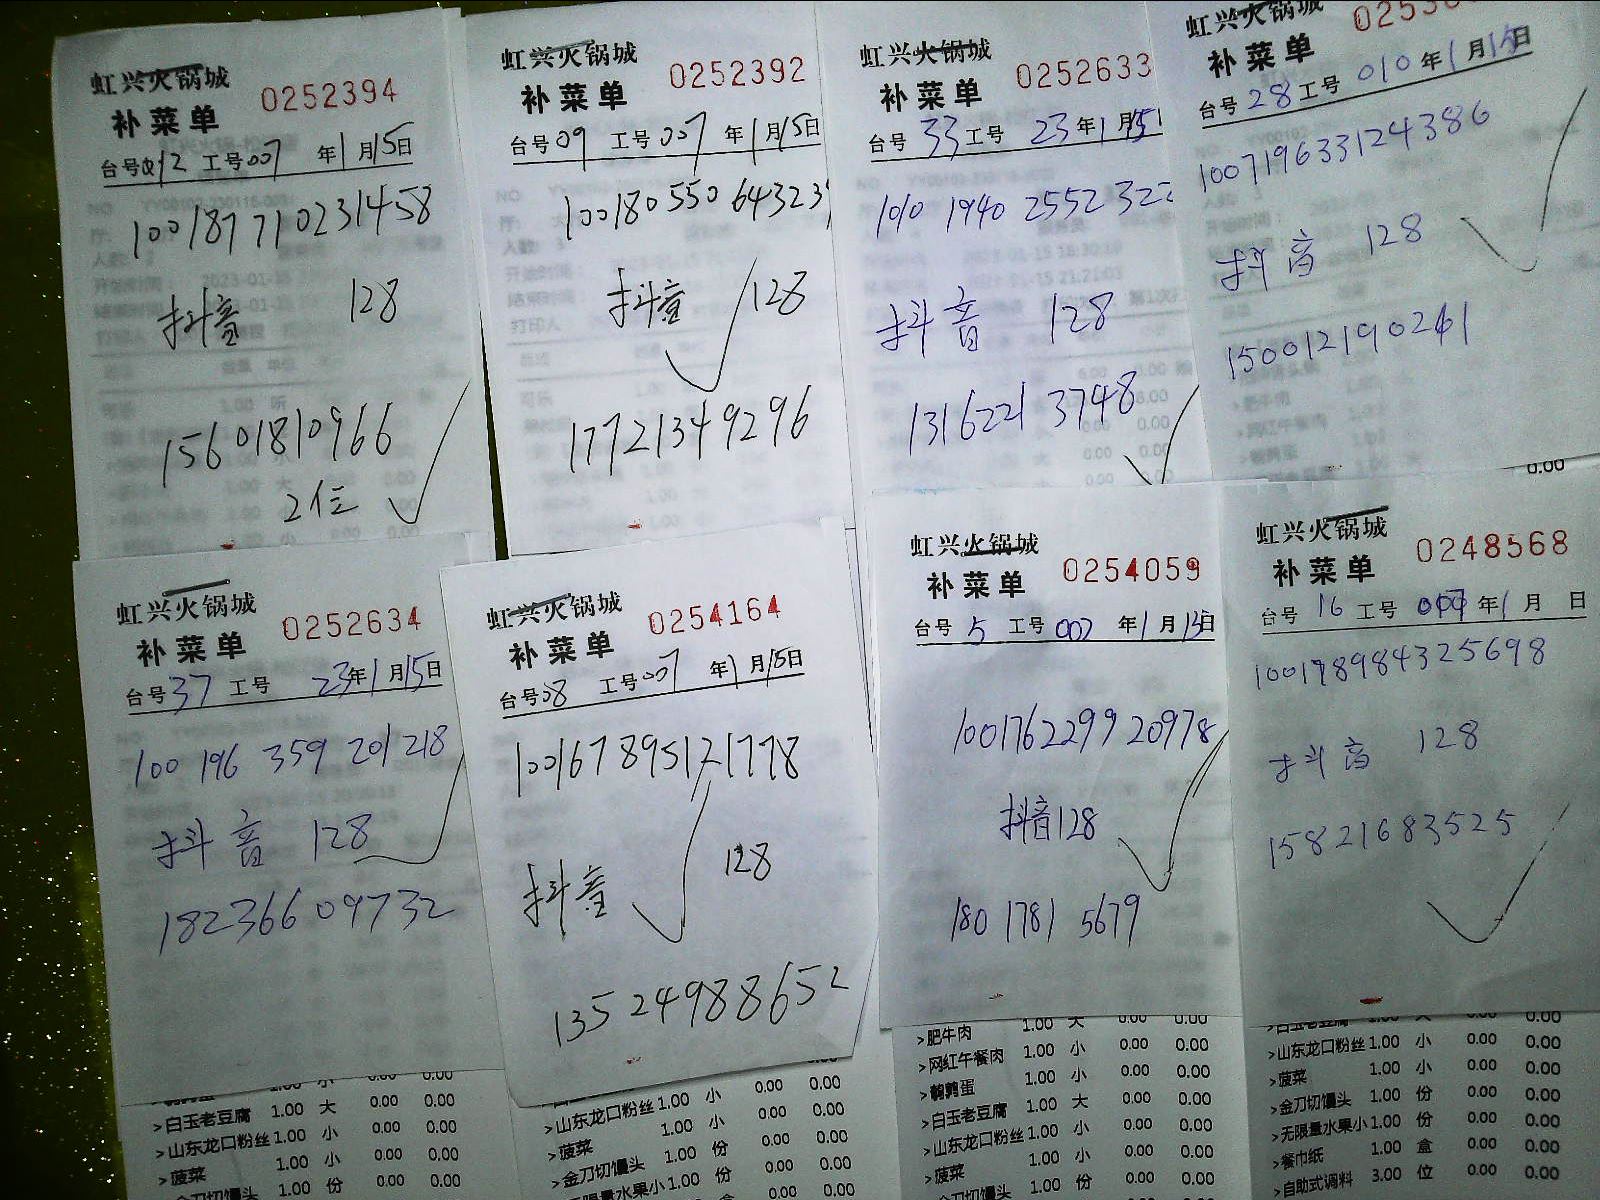 虹兴火锅城
补菜单 0252394
台号012 工号007 年1月15日
100187710231458
抖音 128
15601810966
2位
虹兴火锅城
补菜单 0252392
台号09 工号007 年1月15日
10018055064323
抖音 128
17721349296
虹兴火锅城
补菜单 0252633
台号33 工号 23年1月15
1010 1940 2552 322
抖音 128
1316221 3748
虹兴火锅城
补菜单
台号28 工号010年1月15日
100719633124386
抖音 128
虹兴火锅城
补菜单 0252634
台号37 工号 23年1月15日
100 196 359 201 218
抖音 128
18236609732
虹兴火锅城
补菜单 0254164
台号08 工号007 年1月15日
100167895121778
抖音 128
13524988652
虹兴火锅城
补菜单 0254059
台号5 工号007 年1月15日
100176229920978
抖音128
180 1781 5679
虹兴火锅城
补菜单 0248568
台号 16 工号 年1月 日
100198984325698
抖音 128
15821683525
>白玉老豆腐 1.00 大 0.00 0.00
>山东龙口粉丝 1.00 小 0.00 0.00
>菠菜 1.00 小 0.00 0.00
金刀切馒头 1.00 份 0.00 0.00
>山东龙口粉丝 1.00 小 0.00 0.00
>菠菜 1.00 小 0.00 0.00
>金刀切馒头 1.00 份 0.00 0.00
无限量水果小 1.00 份 0.00 0.00
>肥牛肉 1.00 大 0.00 0.00
>网红午餐肉 1.00 小 0.00 0.00
>鹌鹑蛋 1.00 小 0.00 0.00
>白玉老豆腐 1.00 大 0.00 0.00
>山东龙口粉丝 1.00 小 0.00 0.00
>菠菜 1.00 小 0.00 0.00
金刀切馒头 1.00 份 0.00 0.00
>白玉老豆腐 1.00 大 0.00 0.00
>山东龙口粉丝 1.00 小 0.00 0.00
>菠菜 1.00 小 0.00 0.00
>金刀切馒头 1.00 份 0.00 0.00
>无限量水果小 1.00 份 0.00 0.00
>餐巾纸 1.00 盒 0.00 0.00
>自助式调料 3.00 位 0.00 0.00